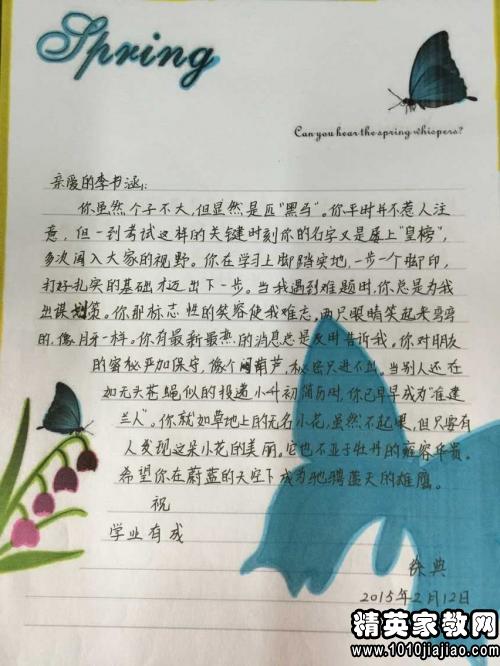 Spring
Can you hear the spring whispers?
亲爱的李书涵:
你虽然个子不大,但显然是匹“黑马”。你平时并不惹人注
意,但一到考试这样的关键时刻你的名字又是屡上“皇榜”,
多次闯入大家的视野。你在学习上脚踏实地,一步一个脚印,
打好扎实的基础才迈出下一步。当我遇到难题时,你总是为我
出谋划策。你那标志性的笑容使我难忘。两只眼睛笑起来弯弯
的,像月牙一样。你有最新最热的消息总是及时告诉我。你对朋友
的密秘严加保守,像个闷葫芦,秘密只进不出。当别人还在
如无头苍蝇似的投递小升初简历时,你已早早成为“准建
兰人”。你就如草地上的无名小花,虽然不起眼,但只要有
人发现这朵小花的美丽,它也不亚于牡丹的雍容华贵。
希望你在蔚蓝的天空下成为驰骋蓝天的雄鹰。
祝
学业有成
徐典
2015年2月12日
精英家教网
www.1010jiajiao.com